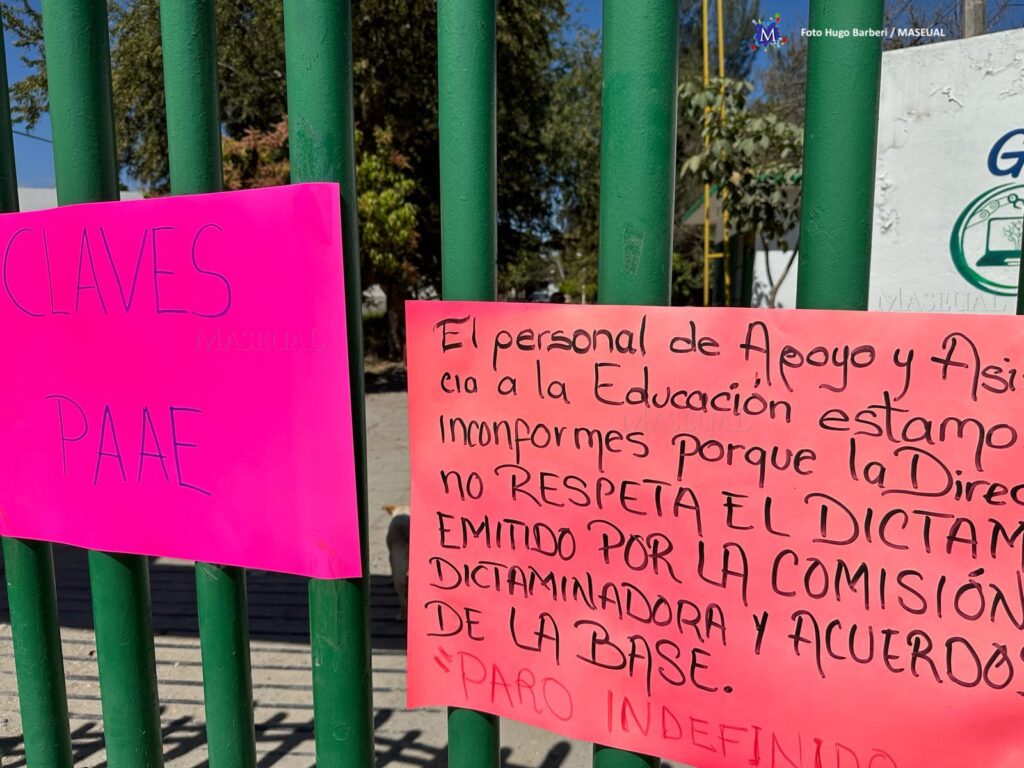 Foto Hugo Barberi / MASEUAL
M
G
CLAVES
PAAE
MASEUAL
MASEUAL
El personal de Apoyo y Asi
cia a la Educación estamo
inconformes porque la Direc
no RESPETA EL DICTAM
EMITIDO POR LA COMISIÓN
DICTAMINADORA Y ACUERDOS
DE LA BASE.
"PARO INDEFINIDO
MASEUAL